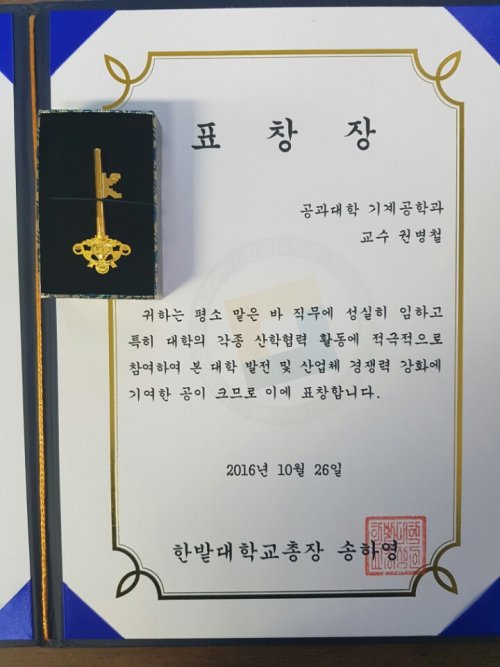 표 창 장
공과대학 기계공학과
교수 권병철
귀하는 평소 맡은 바 직무에 성실히 임하고
특히 대학의 각종 산학협력 활동에 적극적으로
참여하여 본 대학 발전 및 산업체 경쟁력 강화에
기여한 공이 크므로 이에 표창합니다.
2016년 10월 26일
한밭대학교총장 송하영